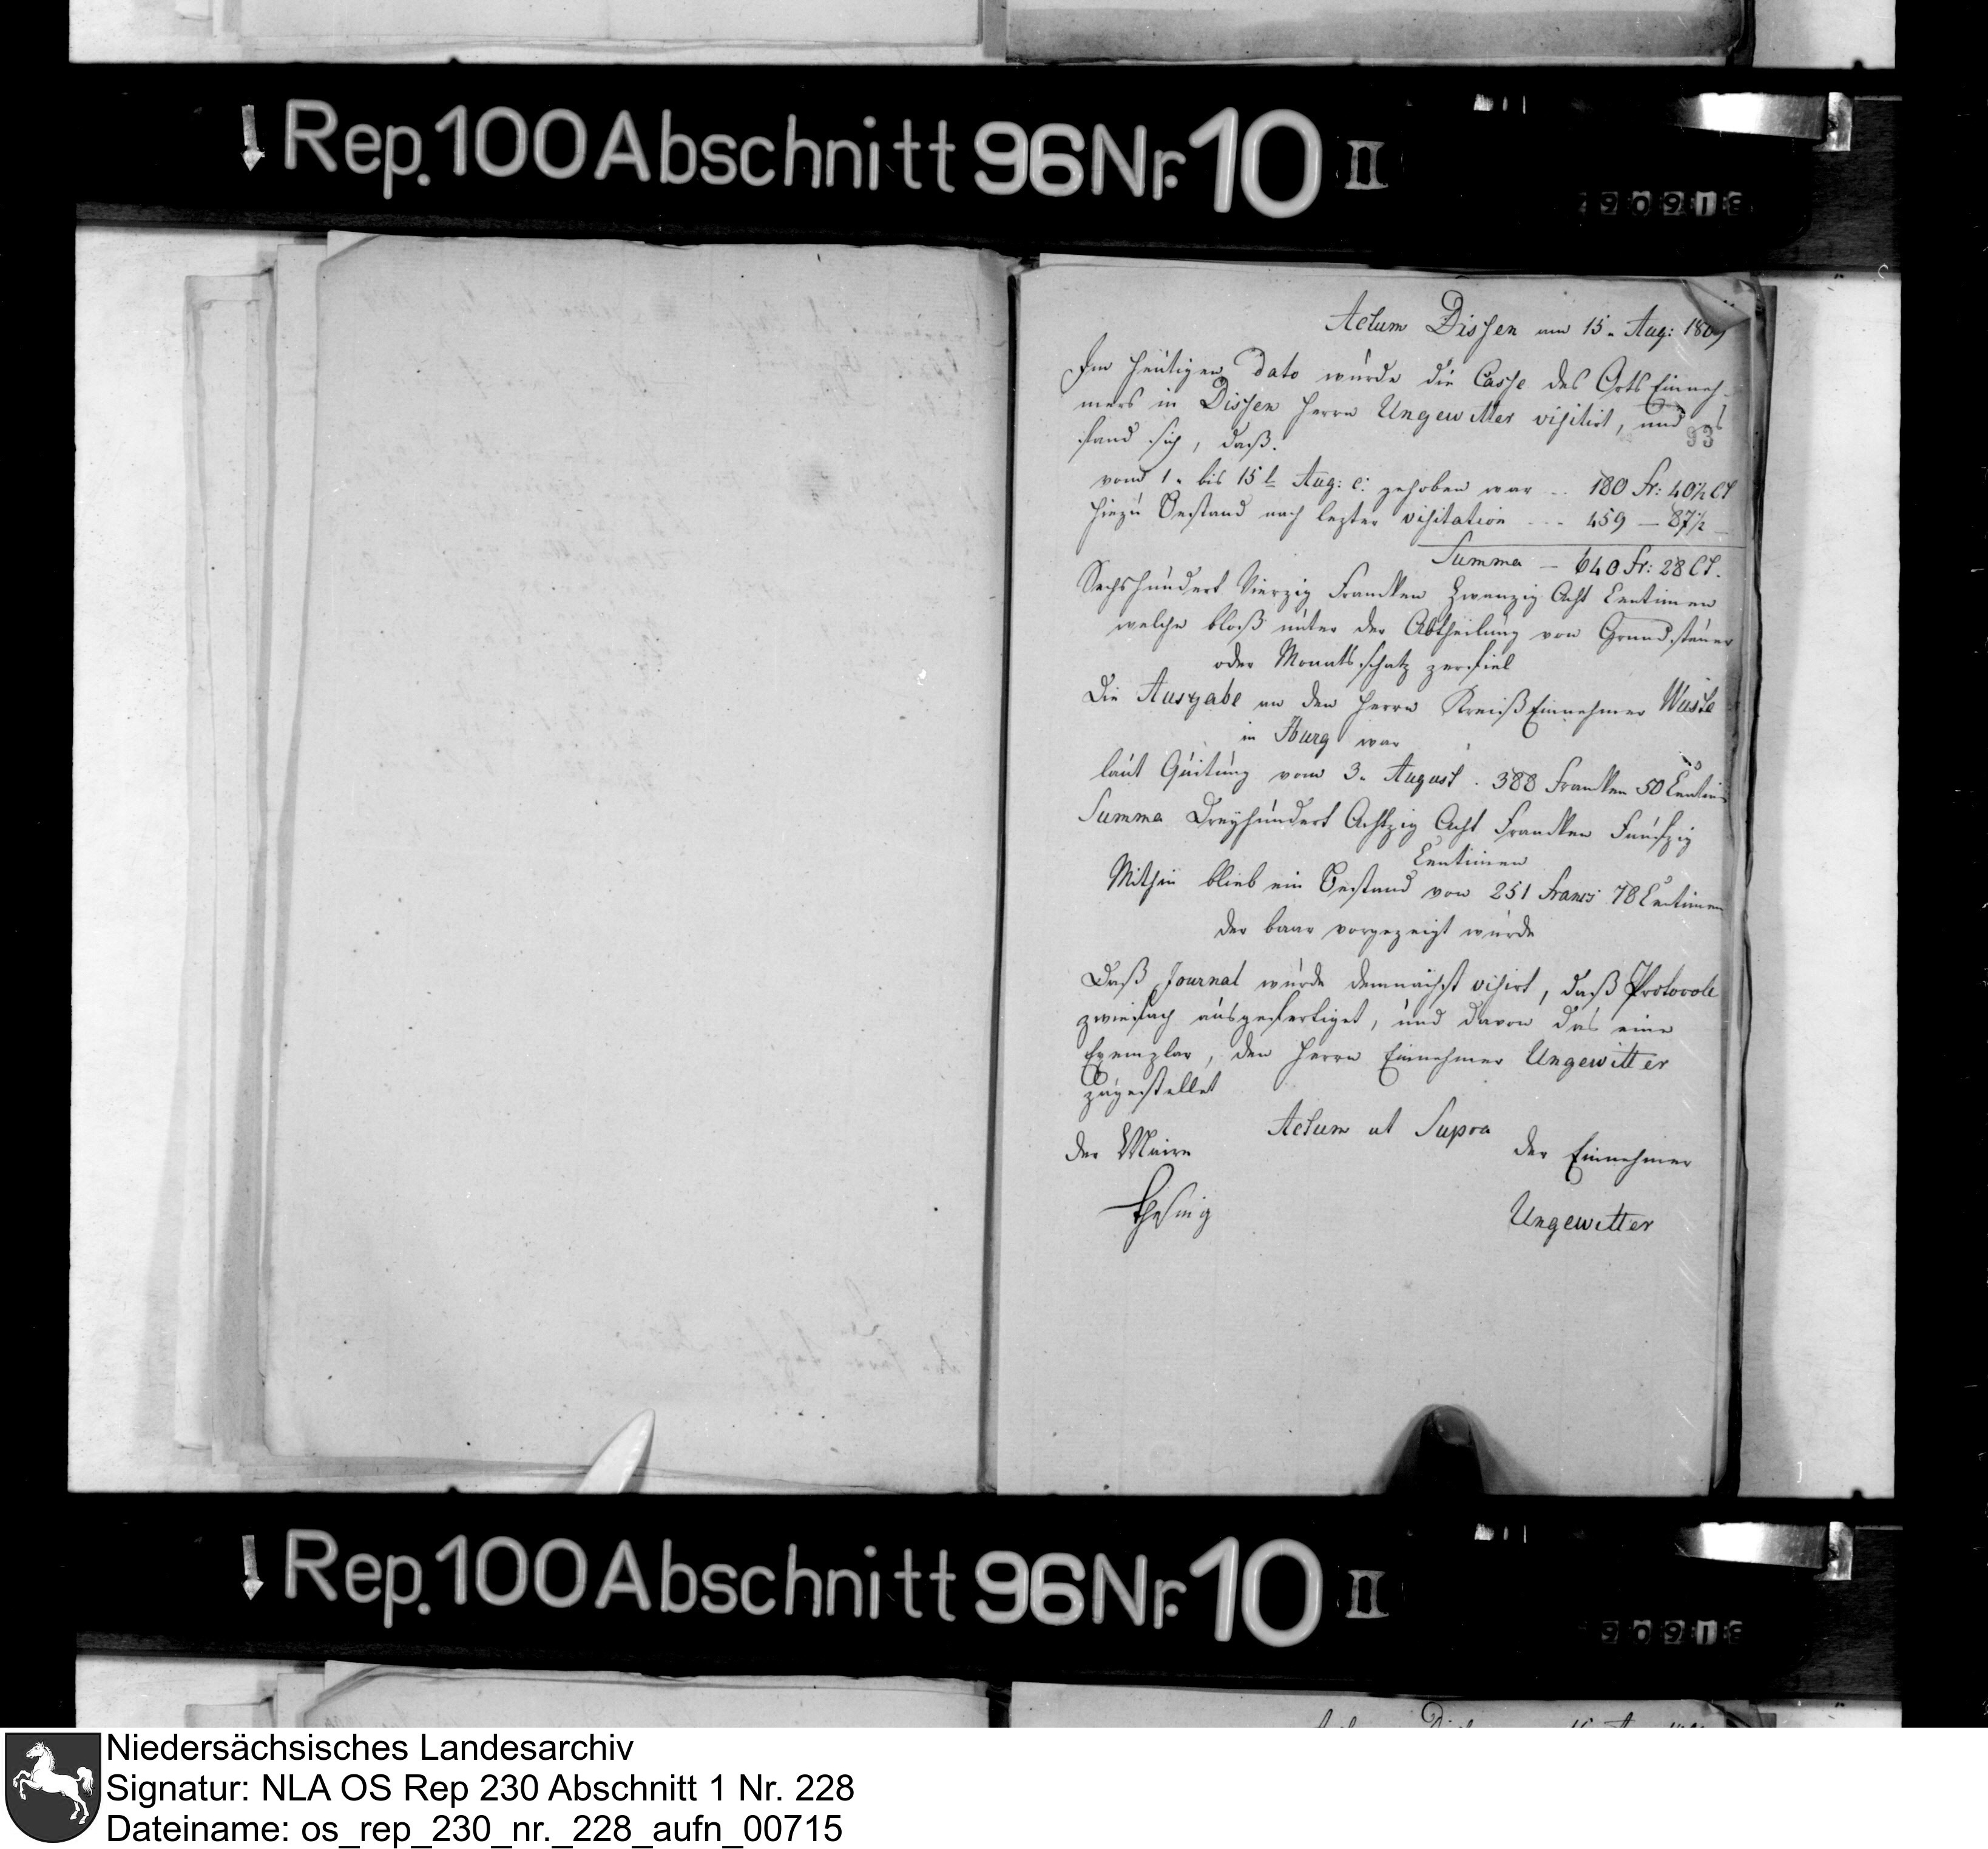 Rep. 100 Abschnitt 96 Nr. 10 II
Actum Dissen am 15. Aug: 1809
Im heutigen Dato wurde die Casse des Orts Einneh-
mers in Dissen Herrn Ungewitter visitirt, und es
93
fand sich, daß.
vom 1. bis 15t Aug: c: gehoben war .. 180 Fr: 40½ Ct
hiezu Bestand nach lezter visitation --- 459 — 87½ —
Summa — 640 Fr: 28 Ct.
Sechshundert Vierzig Francken Zwanzig Acht Centimen
welche bloß unter der Abtheilung von Grundsteuer
oder Monatsschatz zerfiel
Die Ausgabe an den Herrn Kreiß Einnehmer Wuste
in Iburg war
laut Quitung vom 3. August . 388 Francken 50 Centim
Summa Dreyhundert Achtzig Acht Francken Funfzig
Centimen
Mithin blieb ein Bestand von 251 Francs 78 Centimen
der baar vorgezeigt wurde
Daß Journal wurde demnächst visirt, daß Protocoll
zwiefach ausgefertiget, und davon das eine
Exemplar, den Herrn Einnehmer Ungewitter
zugestellet
Actum ut Supra
der Maire
der Einnehmer
Thesing
Ungewitter
Rep. 100 Abschnitt 96 Nr. 10 II
Niedersächsisches Landesarchiv
Signatur: NLA OS Rep 230 Abschnitt 1 Nr. 228
Dateiname: os_rep_230_nr._228_aufn_00715